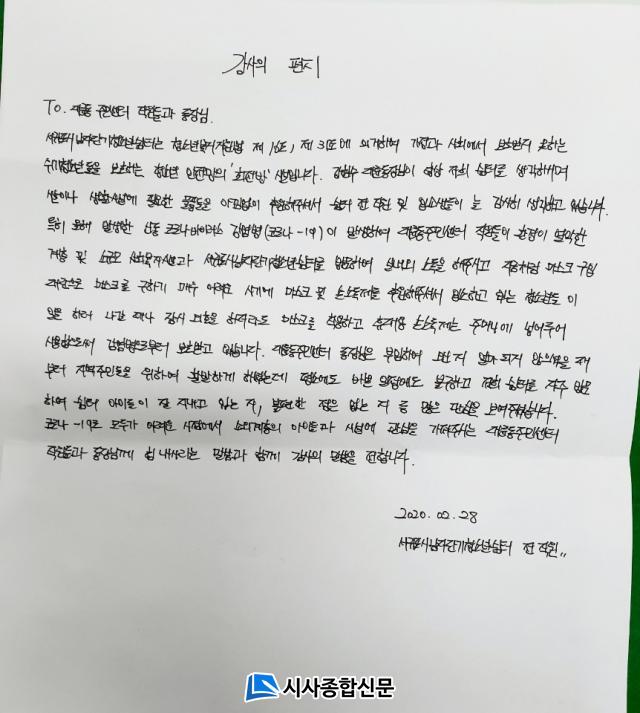 감사의 편지
To. 대륜동 주민센터 직원들과 동장님.
서귀포시남자단기청소년쉼터는 청소년복지지원법 제 16조, 제 31조에 의거하여 가정과 사회에서 보호받지 못하는
위기청소년들을 보호하는 청소년 안전망의 '최전방' 시설입니다. 대륜동장님이 항상 저희 쉼터를 생각하시며
쌀이나 생활시설에 필요한 물품들을 아낌없이 후원해주셔서 쉼터 전 직원 및 입소생들이 늘 감사히 생각하고 있습니다.
특히 올해 발생한 신종 코로나바이러스 감염병(코로나-19)이 발생하여 대륜동주민센터 직원들이 환경이 열악한
계층 및 소규모 사회복지시설과 서귀포시남자단기청소년쉼터를 방문하여 실내외 소독을 해주시고 저희처럼 마스크 구입
대란으로 마스크를 구하기 매우 어려운 시기에 마스크 및 손소독제를 후원해주셔서 입소하고 있는 청소년들이
일을 하러 나갈 때나 잠시 외출을 하더라도 마스크를 착용하고 휴대용 손소독제는 주머니에 넣어두어
사용함으로써 감염병으로부터 보호받고 있습니다. 대륜동주민센터 동장님은 부임하여 오신 지 얼마 되지 않으셨을 때
부터 지역주민들을 위하여 활발하게 하셨는데 평소에도 바쁜 일정에도 불구하고 저희 쉼터를 자주 방문
하여 쉼터 아이들이 잘 지내고 있는 지, 불편한 점은 없는 지 등 많은 관심을 보여주셨습니다.
코로나-19로 모두가 어려운 시점에서 소외계층의 아이들과 시설에 관심을 가져주시는 대륜동주민센터
직원들과 동장님께 힘 내시라는 말씀과 함께 감사의 말씀을 전합니다.
2020. 02. 28
서귀포시남자단기청소년쉼터 전 직원..
시사종합신문